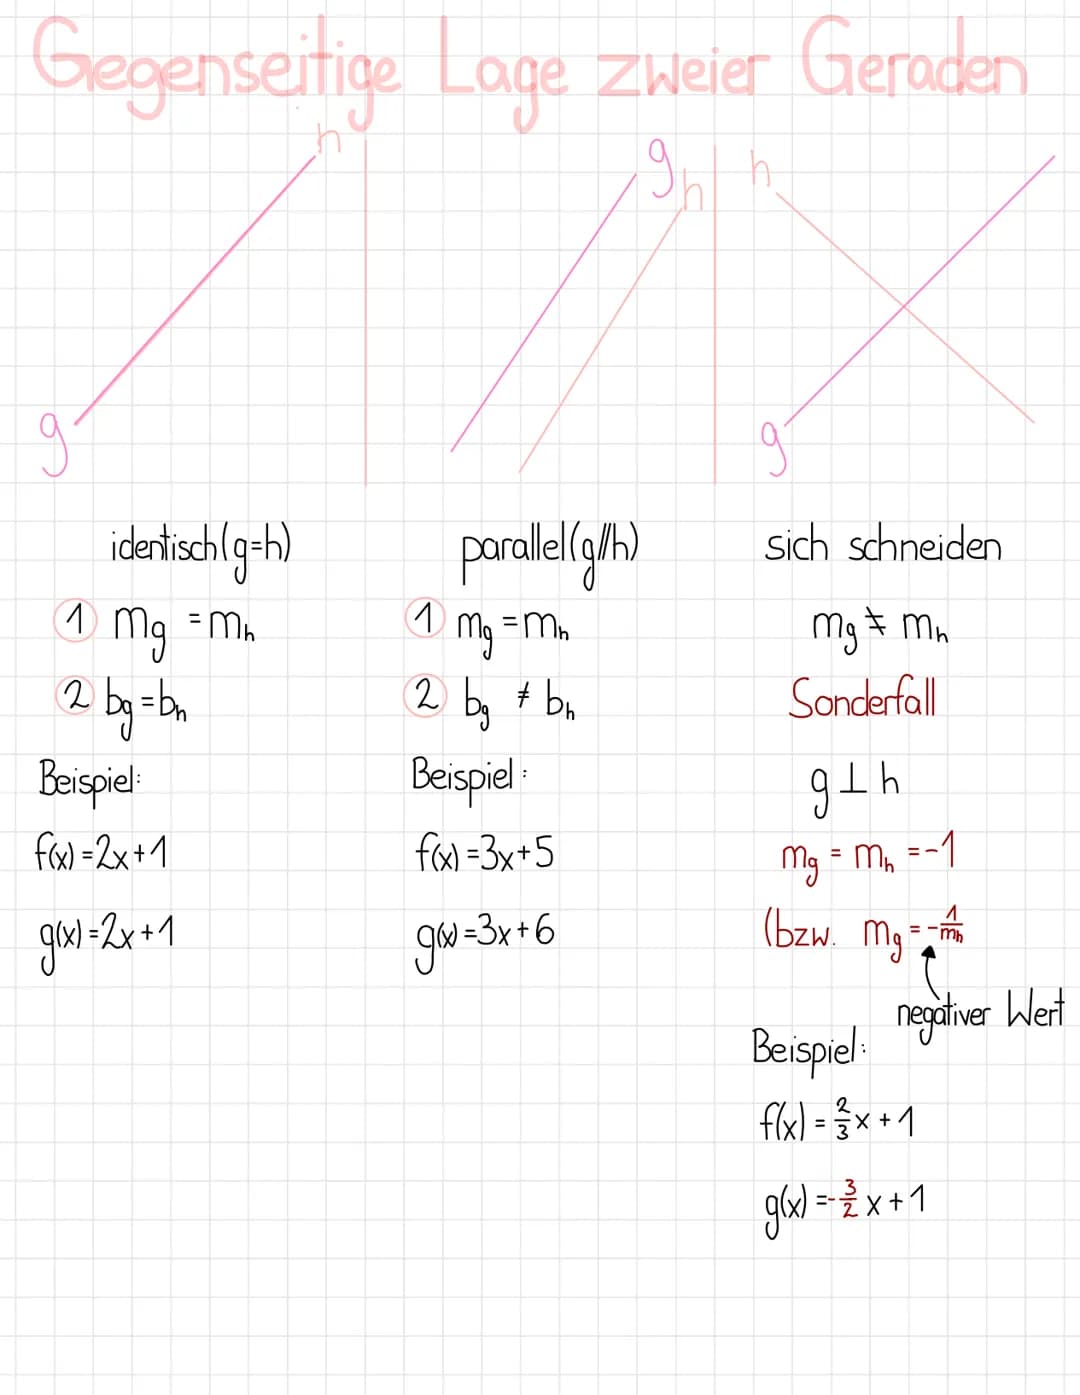 Gegenseitige Lage zweier Geraden
h
g
g
h
h
g
identisch(g=h)
① mg = mh
② bg = bh
Beispiel:
f(x) = 2x+1
g(x) = 2x+1
parallel(g//h)
① mg = mh
② bg ≠ bh
Beispiel:
f(x) = 3x+5
g(x) = 3x+6
sich schneiden
mg ≠ mh
Sonderfall
g ⊥ h
mg = mh = -1
(bzw. mg = -1/mh
negativer Wert
Beispiel:
f(x) = 2/3 x + 1
g(x) = -3/2 x + 1